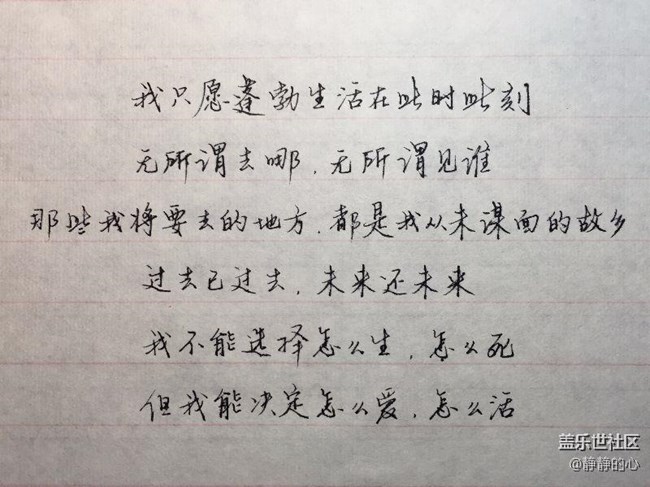 我只愿蓬勃生活在此时此刻
无所谓去哪，无所谓见谁
那些我将要去的地方，都是我从未谋面的故乡
过去已过去，未来还未来
我不能选择怎么生，怎么死
但我能决定怎么爱，怎么活
盖乐世社区
@静静的心